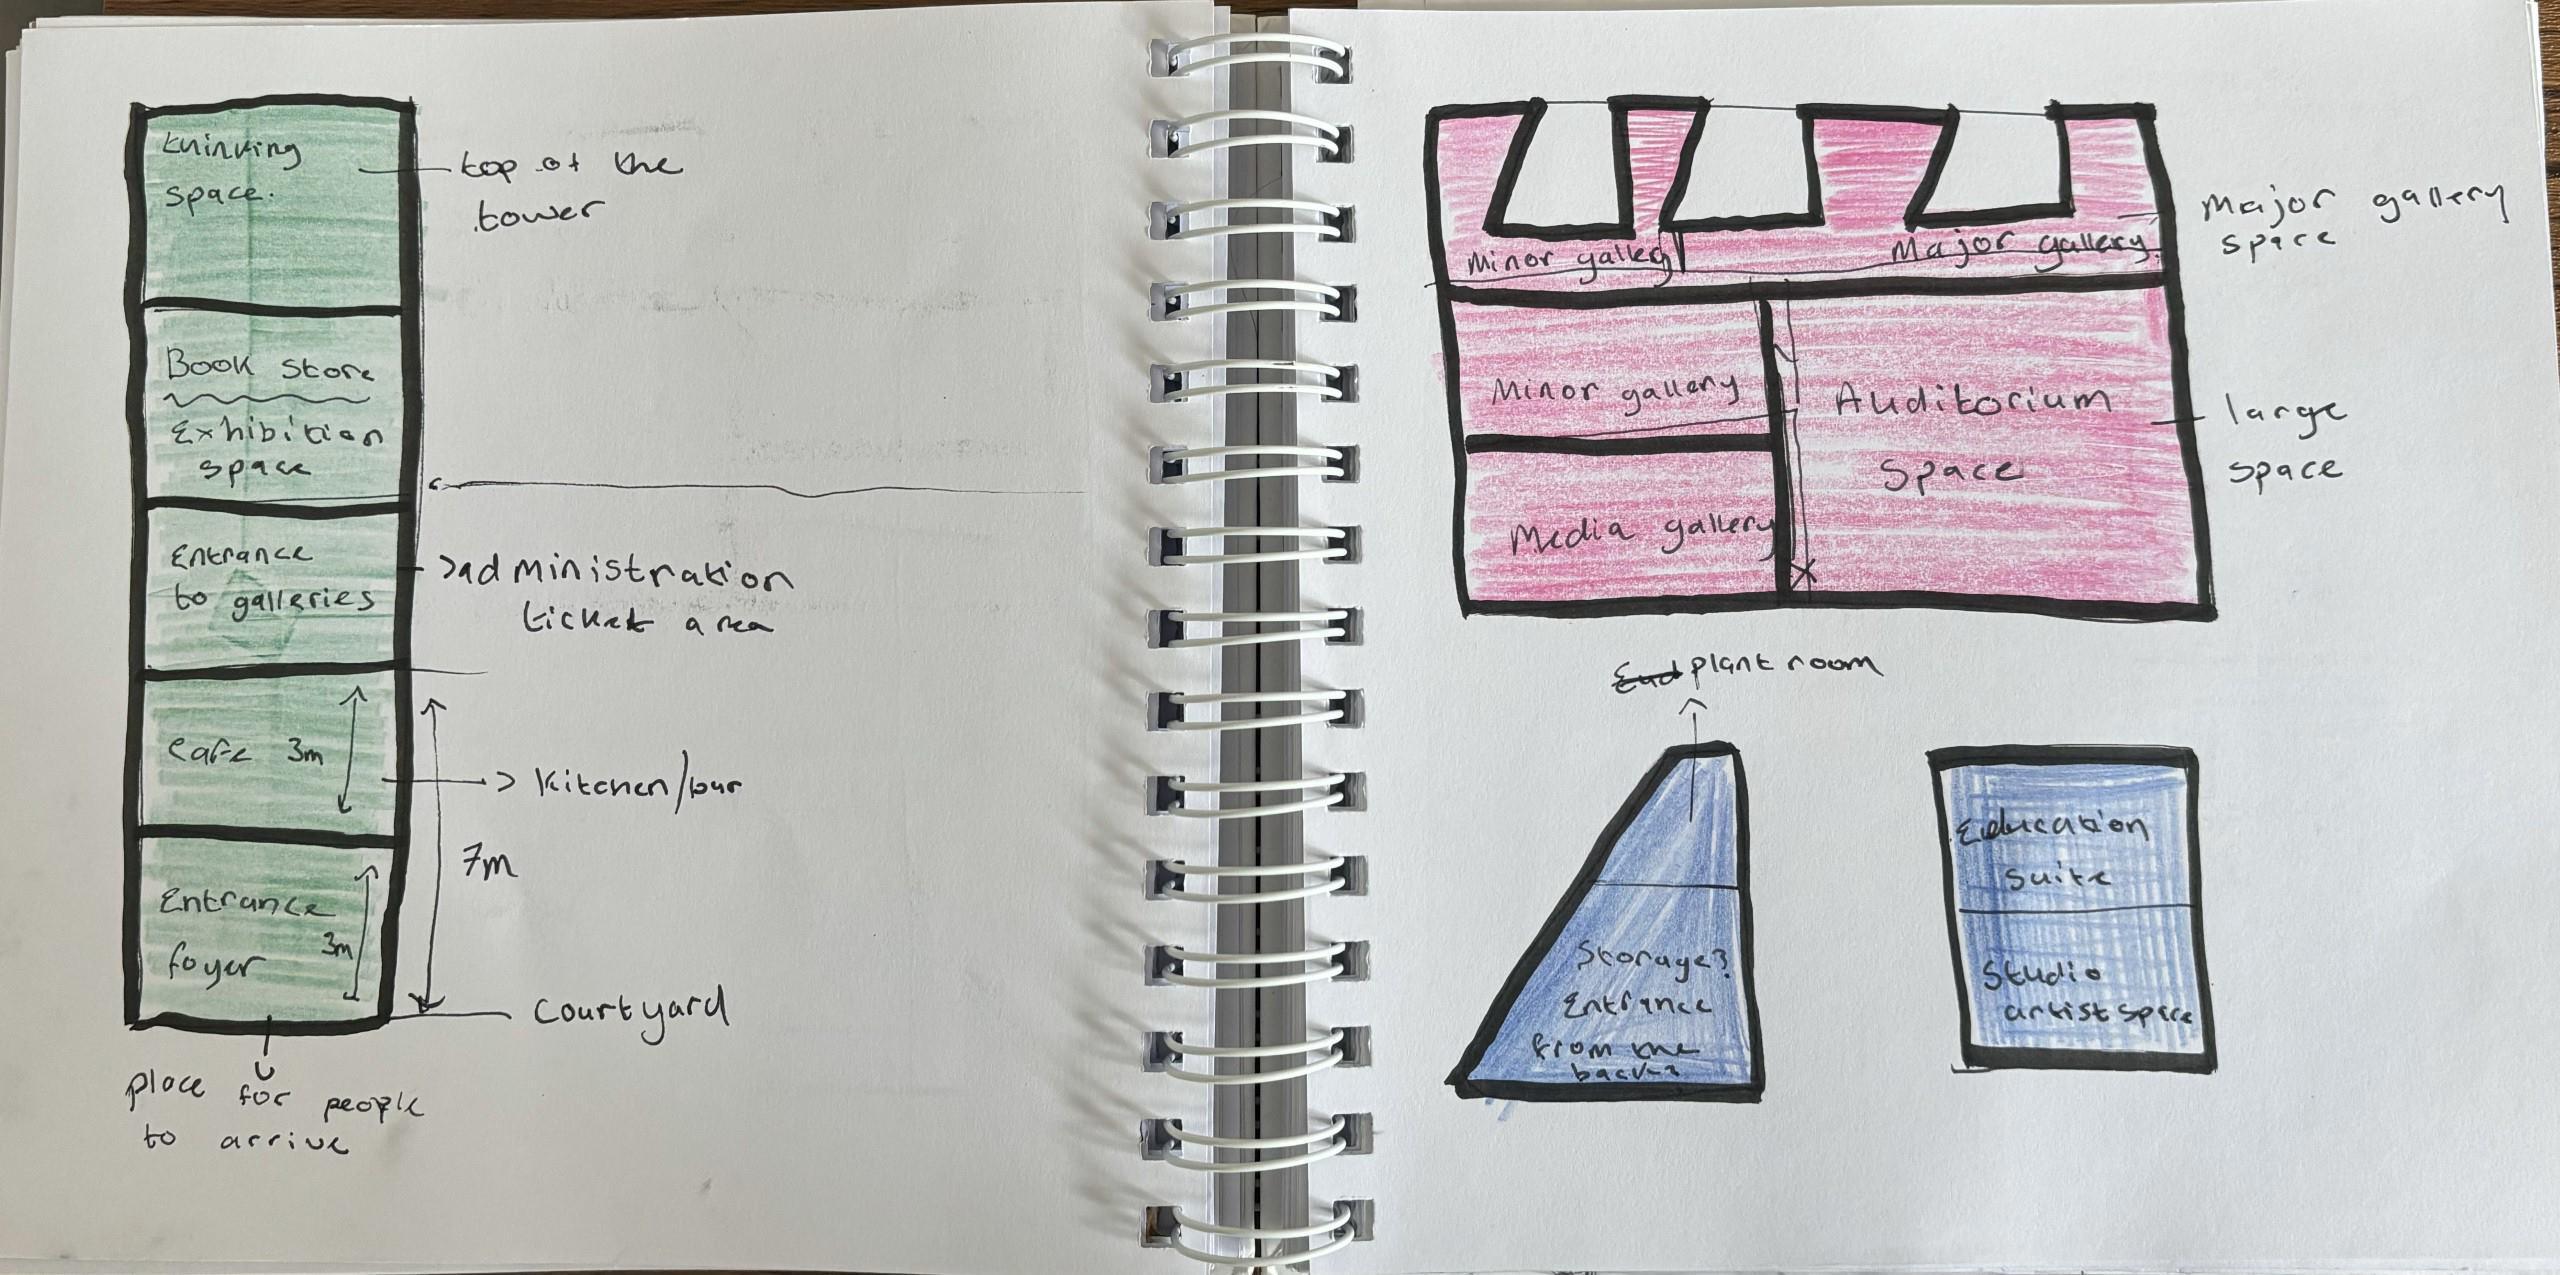 thinking
space.
top of the
tower
Book store
Exhibition
space
Entrance
to galleries
>administration
ticket area
cafe 3m
> Kitchen/bar
7m
Entrance
3m
foyer
Courtyard
place for people
to arrive
Major gallery
space
Minor gallery
Major gallery.
Minor gallery
Auditorium
Space
large
space
Media gallery
plant room
Education
suite
Storage?
Entrance
from the
back?
Studio
artist space